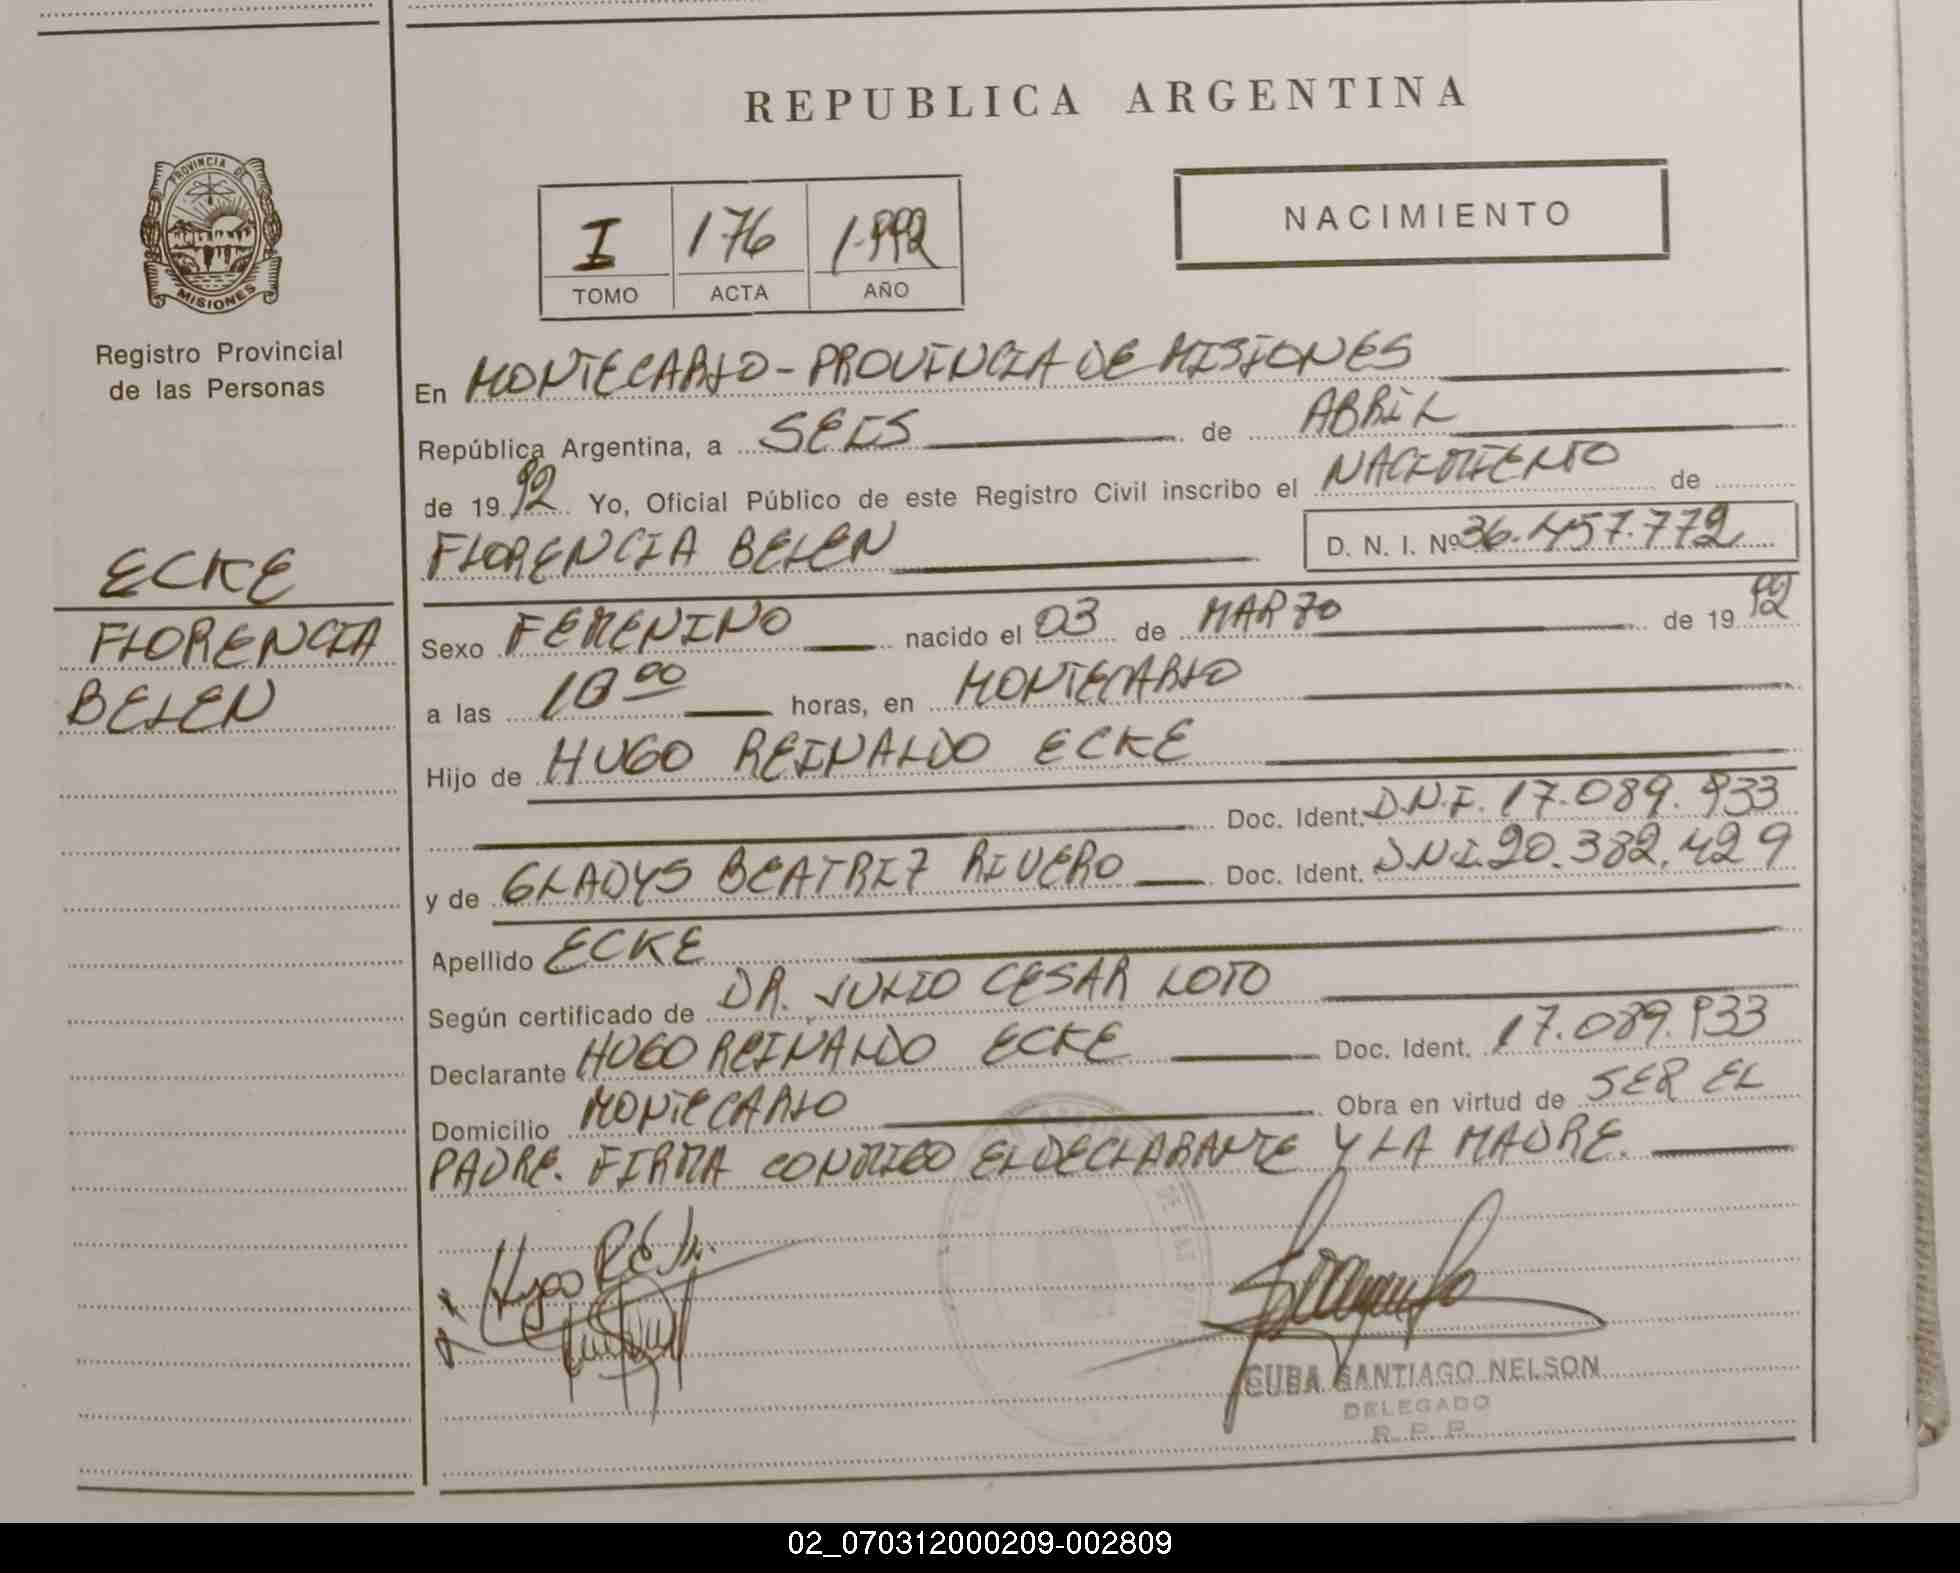 REPUBLICA ARGENTINA
PROVINCIA DE
MISIONES
Registro Provincial
de las Personas
ECKE
FLORENCIA
BELEN
NACIMIENTO
I 176 1.992
TOMO ACTA AÑO
En MONTECARLO - PROVINCIA DE MISIONES
República Argentina, a SEIS de ABRIL
de 1992 Yo, Oficial Público de este Registro Civil inscribo el NACIMIENTO de
FLORENCIA BELEN D. N. I. Nº 36.457.772
Sexo FEMENINO nacido el 03 de MARZO de 1992
a las 10 00 horas, en MONTECARLO
Hijo de HUGO REINALDO ECKE
Doc. Ident. D.N.I. 17.089.933
y de GLADYS BEATRIZ RIVERO Doc. Ident. D.N.I. 20.382.429
Apellido ECKE
Según certificado de DR. JULIO CESAR LOTO
Declarante HUGO REINALDO ECKE Doc. Ident. 17.089.933
Domicilio MONTECARLO Obra en virtud de SER EL
PADRE. FIRMA CONMIGO EL DECLARANTE Y LA MADRE.
CUBA SANTIAGO NELSON
DELEGADO
R. P. P.
02_070312000209-002809